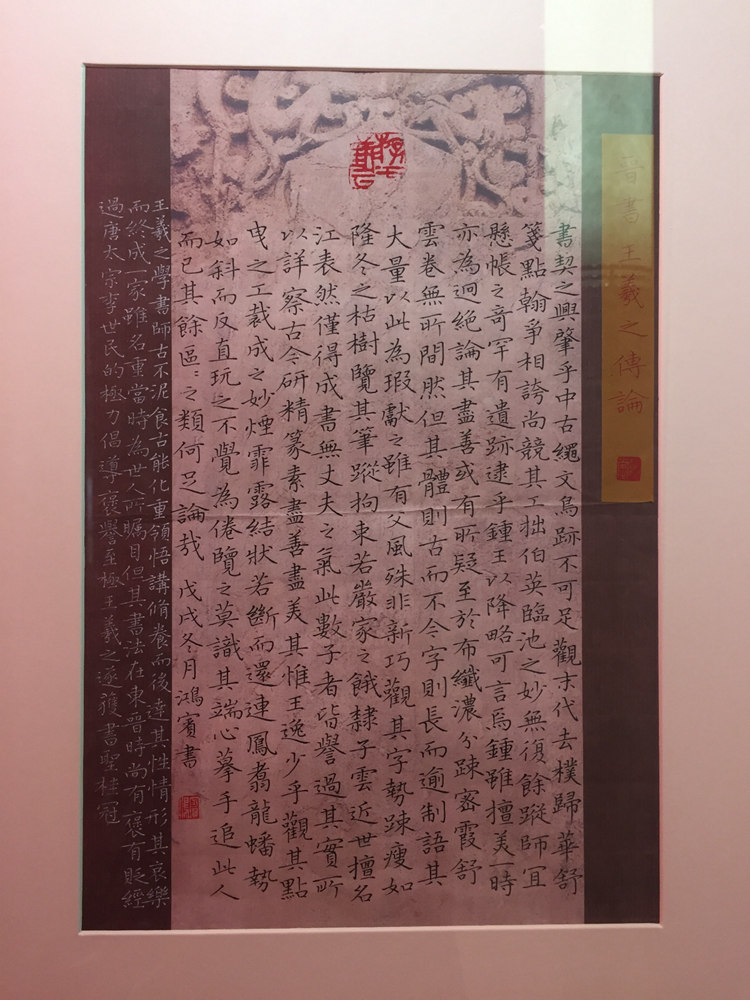 晉書王羲之傳論
書契之興肇乎中古繩文鳥跡不可足觀末代去樸歸華舒
箋點翰爭相誇尚競其工拙伯英臨池之妙無復餘蹤師宜
懸帳之奇罕有遺跡逮乎鍾王以降略可言焉鍾雖擅美一時
亦為迥絕論其盡善或有所疑至於布纖濃分疎密霞舒
雲卷無所間然但其體則古而不今字則長而逾制語其
大量以此為瑕獻之雖有父風殊非新巧觀其字勢疎瘦如
隆冬之枯樹覽其筆蹤拘束若嚴家之餓隸子雲近世擅名
江表然僅得成書無丈夫之氣此數子者皆譽過其實所
以詳察古今研精篆素盡善盡美其惟王逸少乎觀其點
曳之工裁成之妙煙霏露結狀若斷而還連鳳翥龍蟠勢
如斜而反直玩之不覺為倦覽之莫識其端心摹手追此人
而已其餘區:之類何足論哉 戊戌冬月鴻賓書
王羲之學書師古不泥食古能化重領悟講脩養而後達其性情形其哀樂
而終成一家雖名重當時為世人所矚目但其書法在東晉時尚有褒有貶經
過唐太宗李世民的極力倡導褒譽至極王羲之遂獲書聖桂冠